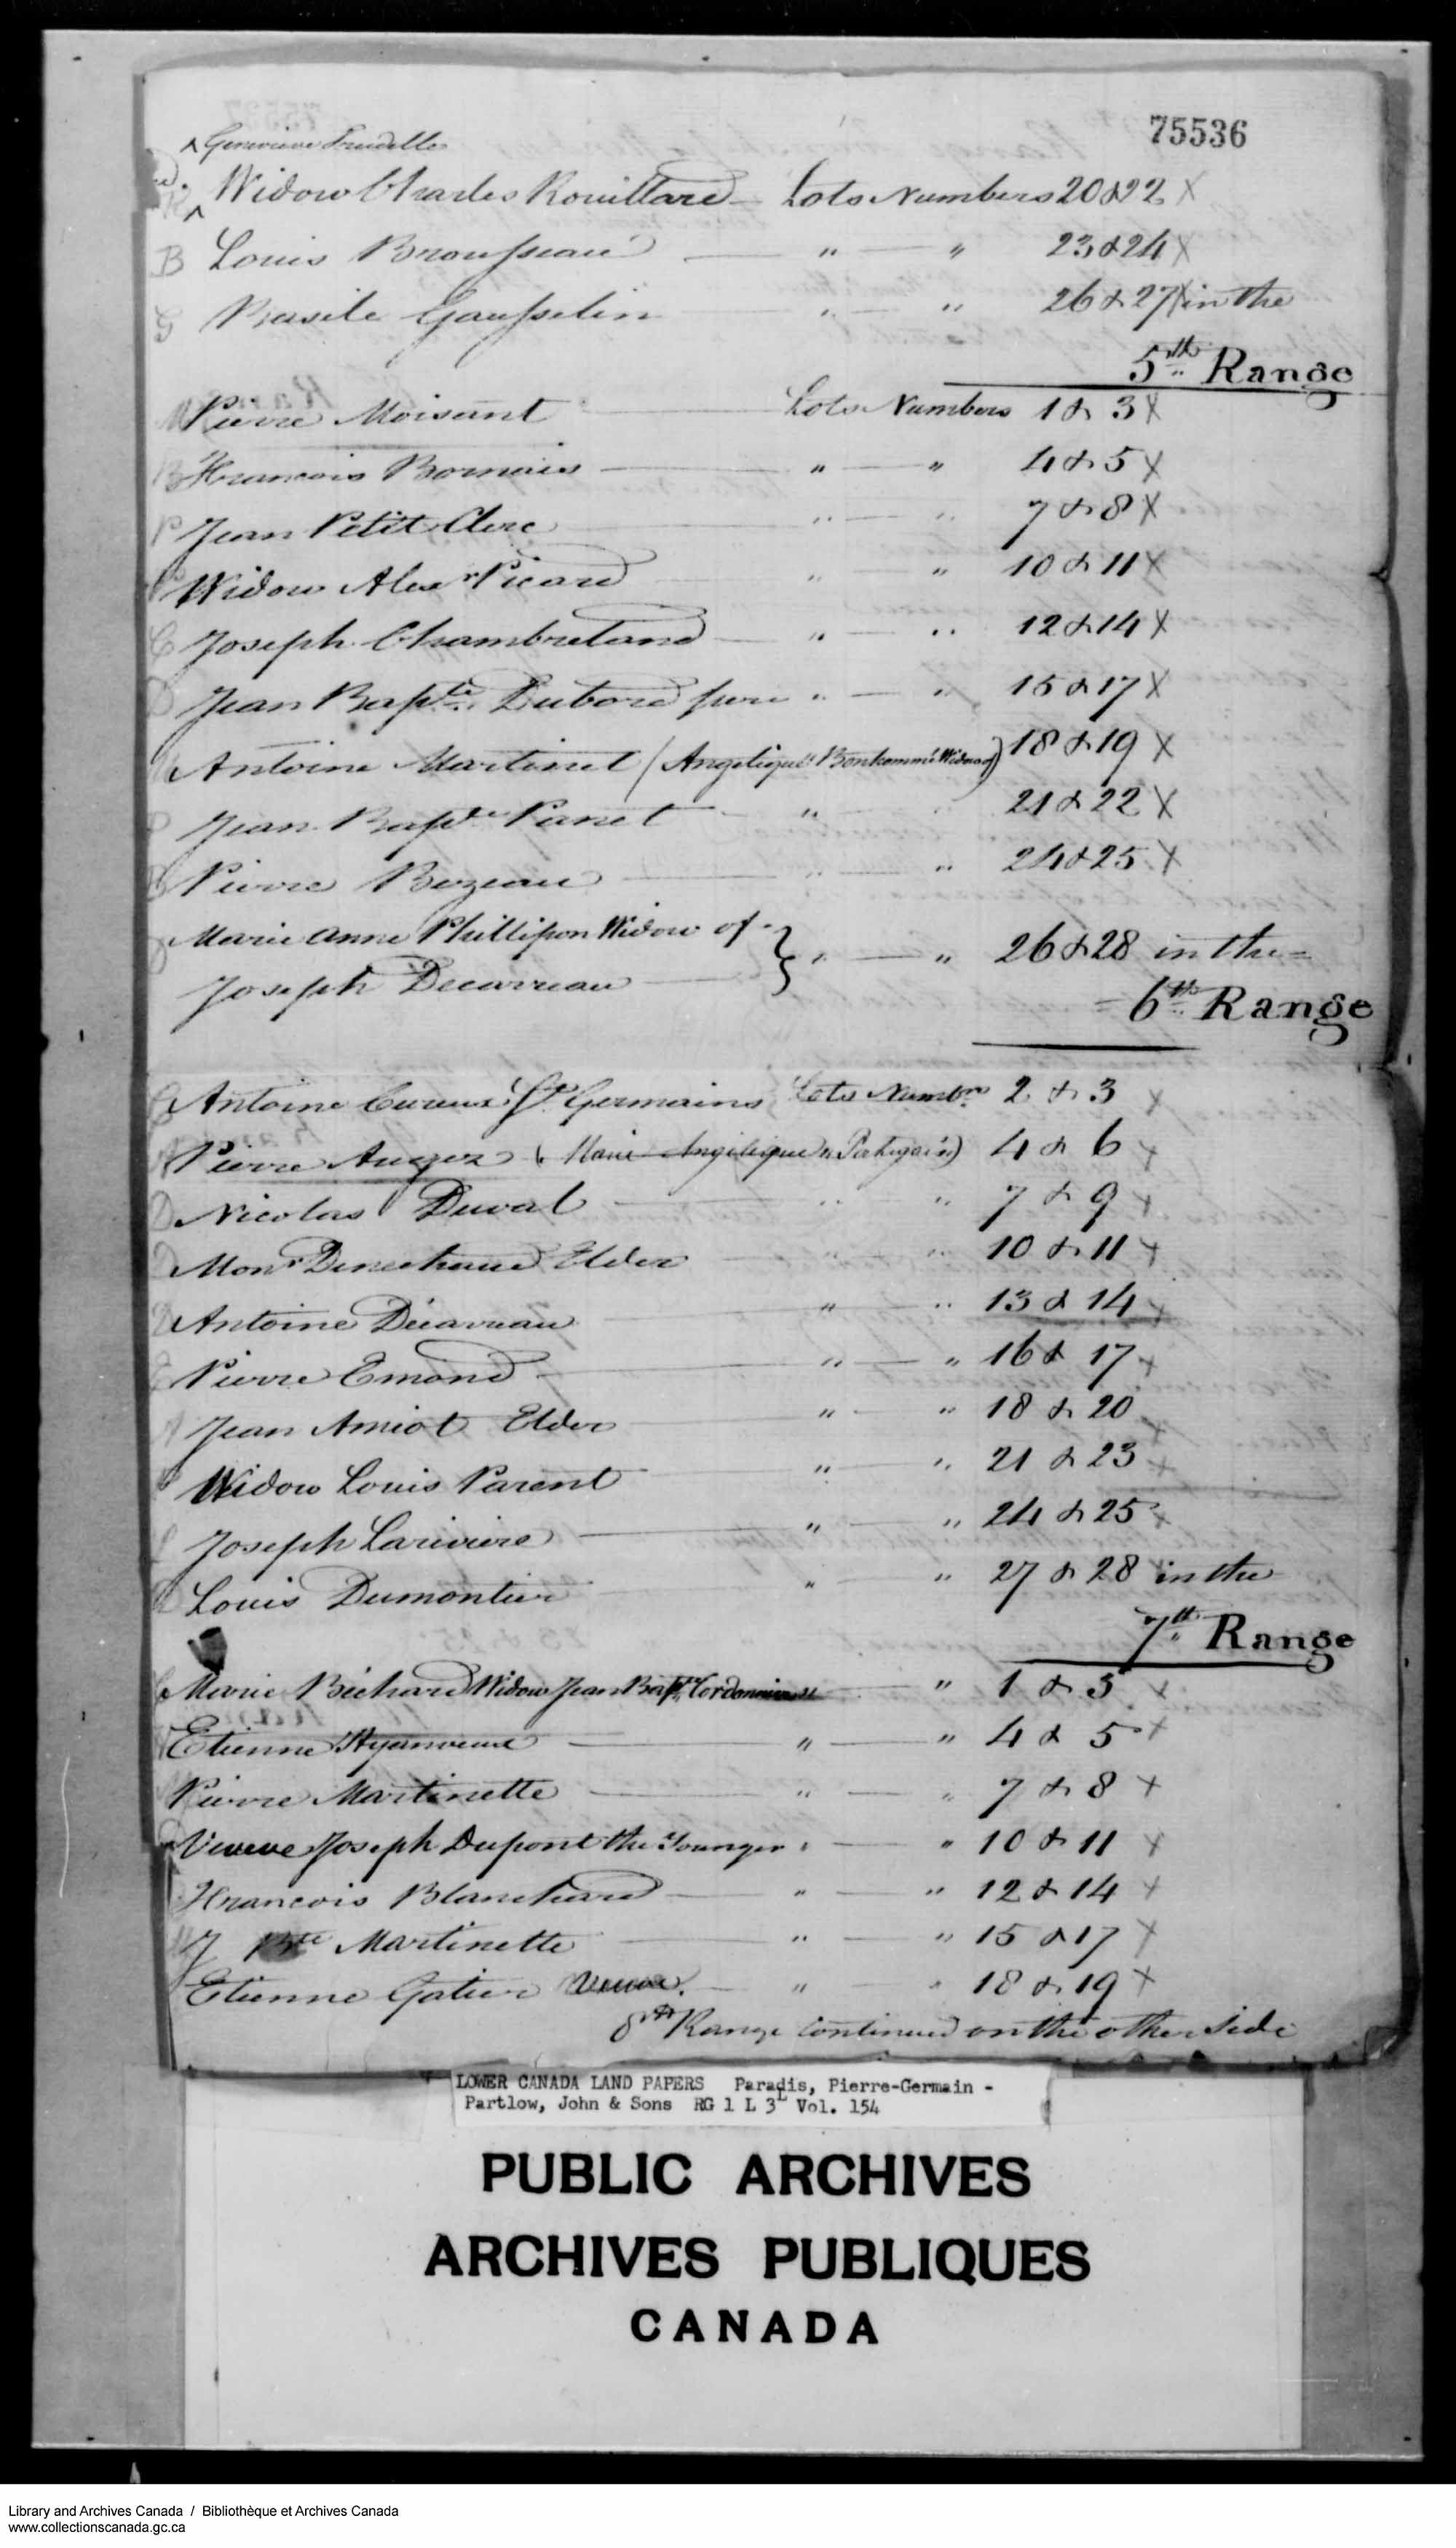 75536
^ Genevieve Trudelle
Widow Charles Rouillard Lots Numbers 20 & 22 X
B Louis Brousseau " " 23 & 24 X
G Basile Gausselin " " 26 & 27 X in the
5th Range
M Pierre Moisant Lots Numbers 1 & 3 X
B Francois Bornais " " 4 & 5 X
P Jean Petit Clerc " " 7 & 8 X
P Widow Alexr Picard " " 10 & 11 X
C Joseph Chambreland " " 12 & 14 X
D Jean Bapte Dubord " " 15 & 17 X
M Antoine Martinet (Angelique Bonhomme Widow) 18 & 19 X
P Jean Bapte Panet " 21 & 22 X
B Pierre Bezeau " " 24 & 25 X
D Marie Anne Phillipon Widow of } " " 26 & 28 in the =
Joseph Decarreau
= 6th Range
C Antoine Cureux St Germains Lots Numbrs 2 & 3 X
A Pierre Augez (Marie Angelique) 4 & 6 X
D Nicolas Duval " " 7 & 9 X
D Monr Denechaud Elder " " 10 & 11 X
D Antoine Décarreau " " 13 & 14 X
E Pierre Emond " " 16 & 17 X
A Jean Amiot Elder " " 18 & 20
P Widow Louis Parent " " 21 & 23 X
L Joseph Lariviere " " 24 & 25 X
D Louis Dumontier " " 27 & 28 in the
7th Range
C Marie Bechard Widow Jean Bapt Cordonnier " " 1 & 3 X
Etienne " " 4 & 5 X
Pierre Martinette " " 7 & 8 X
Veuve Joseph Dupont the Younger " " 10 & 11 X
Francois Blanchard " " 12 & 14 X
M J Bte Martinette " " 15 & 17 X
Etienne Gatien Veuve. " " 18 & 19 X
8th Range continued on the other side
LOWER CANADA LAND PAPERS Paradis, Pierre-Germain -
Partlow, John & Sons RG 1 L 3L Vol. 154
PUBLIC ARCHIVES
ARCHIVES PUBLIQUES
CANADA
Library and Archives Canada / Bibliothèque et Archives Canada
www.collectionscanada.gc.ca